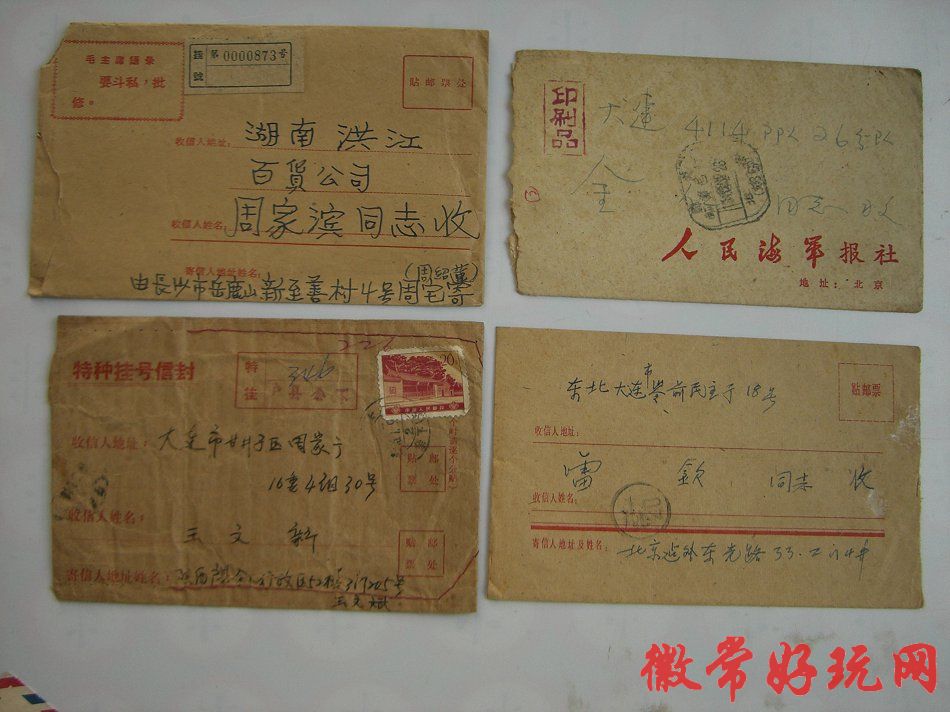 毛主席语录
要斗私，批
修。
挂號 第0000873号
贴邮票处
收信人地址：湖南洪江
百货公司
收信人姓名：周家滨同志收
寄信人地址姓名：
由長沙市岳麓山新至善村4号周宅寄
印刷品
大连 4114
人民海军报社
地址：北京
特种挂号信封
特挂 346
20
中国人民邮政
收信人地址：大连市甘井子区周家
4组30号
贴邮票处
收信人姓名：
王文新
贴邮票处
寄信人地址姓名：
贴邮票
东北大连市岭前民主于18号
收信人地址：
雷钦同志收
收信人姓名：
寄信人地址及姓名：北京 外东光路33
徽常好玩网